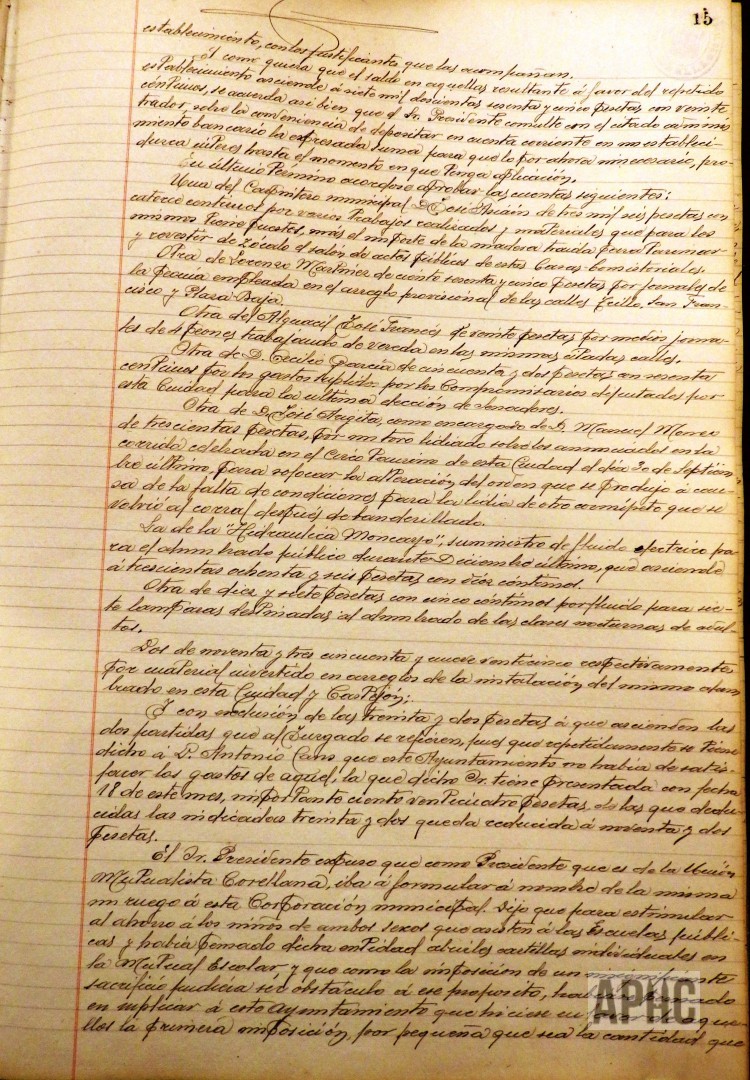 15
establecimiento, con los justificantes que las acompañan.
Y como quiera que el saldo en aquellas resultante á favor del repetido
establecimiento asciende á siete mil doscientas sesenta y cinco pesetas con veinte
céntimos, se acuerda así bien que el Sr. Presidente consulte con el citado adminis
trador, sobre la conveniencia de depositar en cuenta corriente en un estableci-
miento bancario la expresada suma para que lo por ahora innecesario, pro-
duzca interes hasta el momento en que tenga aplicación.
En último término acordose aprobar las cuentas siguientes:
Una del Carpintero municipal D. José de tres mil seis pesetas con
catorce centimos por varios trabajos realizados y materiales que para los
mismos tiene puestos, más el importe de la madera traida para
y revestir de zócalo el salón de actos públicos de estas Casas-Consistoriales.
Otra de Lorenzo Martinez de ciento sesenta y cinco pesetas por jornales de
la empleada en el arreglo provisional de las calles San Fran-
cisco y Plaza Baja.
Otra del Alguacil José Francés de veinte pesetas por medios jorna-
les de peones trabajando de vereda en las mismas citadas calles.
Otra de D. Cecilio García de cincuenta y dos pesetas con sesenta
centimos por los gastos suplidos por los Compromisarios diputados por
esta Ciudad para la ultima elección de Senadores.
Otra de D. José como encargado de D. Manuel
de trescientas pesetas, por un toro lidiado sobre los anunciados en la
corrida celebrada en el Circo Taurino de esta Ciudad el dia 30 de Septiem
bre último, para sofocar la alteración del orden que se produjo á cau-
sa de la falta de condiciones para la lidia de otro cornúpeto que se
volvió al corral después de banderilleado.
La de la "Hidraulica Moncayo", suministro de fluido eléctrico pa-
ra el alumbrado público durante Diciembre último, que asciende
á trescientas ochenta y seis pesetas con doce céntimos.
Otra de diez y siete pesetas con cinco céntimos por fluido para sie-
te lamparas destinadas al alumbrado de las clases nocturnas de adul-
tos.
Dos de noventa y tres cincuenta y nueve veinticinco respectivamente
por material invertido en arreglos de la instalación del mismo alum
brado en esta Ciudad y Castejón;
Y con exclusión de las treinta y dos pesetas á que ascienden las
dos partidas que al Juzgado se refieren, pues que repetidamente se tiene
dicho á D. Antonio Cano que este Ayuntamiento no habia de satis-
facer los gastos de aquel, la que dicho Sr. tiene presentada con fecha
18 de este mes, importante ciento veinticuatro pesetas, de las que dedu-
cidas las indicadas treinta y dos queda reducida á noventa y dos
pesetas.
El Sr. Presidente expuso que como Presidente que es de la Unión
Mutualista Corellana, iba á formular á nombre de la misma
un ruego á esta Corporación municipal. Dijo que para estimular
al ahorro á los niños de ambos sexos que asisten á las Escuelas públi-
cas y había pensado dicha entidad abrirles cartillas individuales en
la Mutual Escolar, y que como la imposición de un
sacrificio pudiera ser obstáculo á ese proposito,
en suplicar á este Ayuntamiento que hiciese
llos la primera imposición, por pequeña que sea la cantidad que
APHC